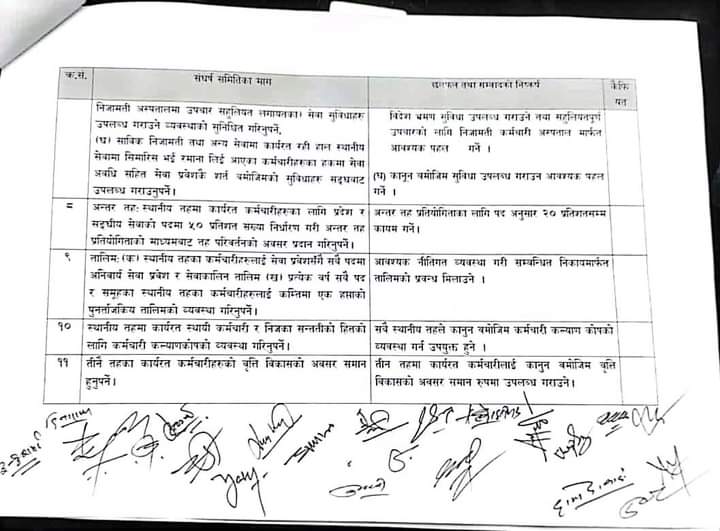 क.सं.
संघर्ष समितिका माग
छलफल तथा सम्वादको निष्कर्ष
कैफियत
निजामती अस्पतालमा उपचार सहुलियत लगायतका) सेवा सुविधाहरु
उपलब्ध गराउने व्यवस्थाको सुनिश्चित गरिनुपर्ने,
(घ) साविक निजामती तथा अन्य सेवामा कार्यरत रही हाल स्थानीय
सेवामा सिफारिस भई रमाना लिई आएका कर्मचारीहरुका हकमा सेवा
अवधि सहित सेवा प्रवेशकै शर्त बमोजिमको सुविधाहरु सङ्घबाट
उपलब्ध गराउनुपर्ने।
विदेश भ्रमण सुविधा उपलब्ध गराउने तथा सहुलियतपूर्ण
उपचारको लागि निजामती कर्मचारी अस्पताल मार्फत
आवश्यक पहल गर्ने ।
(घ) कानून बमोजिम सुविधा उपलब्ध गराउन आवश्यक पहल
गर्ने ।
८
अन्तर तह: स्थानीय तहमा कार्यरत कर्मचारीहरुका लागि प्रदेश र
सङ्घीय सेवाको पदमा ५० प्रतिशत संख्या निर्धारण गरी अन्तर तह
प्रतियोगिताको माध्यमबाट तह परिवर्तनको अवसर प्रदान गरिनुपर्ने।
अन्तर तह प्रतियोगिताका लागि पद अनुसार २० प्रतिशतसम्म
कायम गर्ने।
९
तालिम: (क) स्थानीय तहका कर्मचारीहरुलाई सेवा प्रवेशसँगै सबै पदमा
अनिवार्य सेवा प्रवेश र सेवाकालिन तालिम (ख) प्रत्येक वर्ष सबै पद
र समूहका स्थानीय तहका कर्मचारीहरुलाई कम्तिमा एक हप्ताको
पुनर्ताजकिय तालिमको व्यवस्था गरिनुपर्ने।
आवश्यक नीतिगत व्यवस्था गरी सम्बन्धित निकायमार्फत
तालिमको प्रवन्ध मिलाउने ।
१०
स्थानीय तहमा कार्यरत स्थायी कर्मचारी र निजका सन्ततीको हितको
लागि कर्मचारी कल्याणकोषको व्यवस्था गरिनुपर्ने।
सबै स्थानीय तहले कानुन बमोजिम कर्मचारी कल्याण कोषको
व्यवस्था गर्न उपयुक्त हुने ।
११
तीनै तहका कार्यरत कर्मचारीहरुको वृत्ति विकासको अवसर समान
हुनुपर्ने।
तीन तहमा कार्यरत कर्मचारीलाई कानुन बमोजिम वृत्ति
विकासको अवसर समान रुपमा उपलब्ध गराउने।